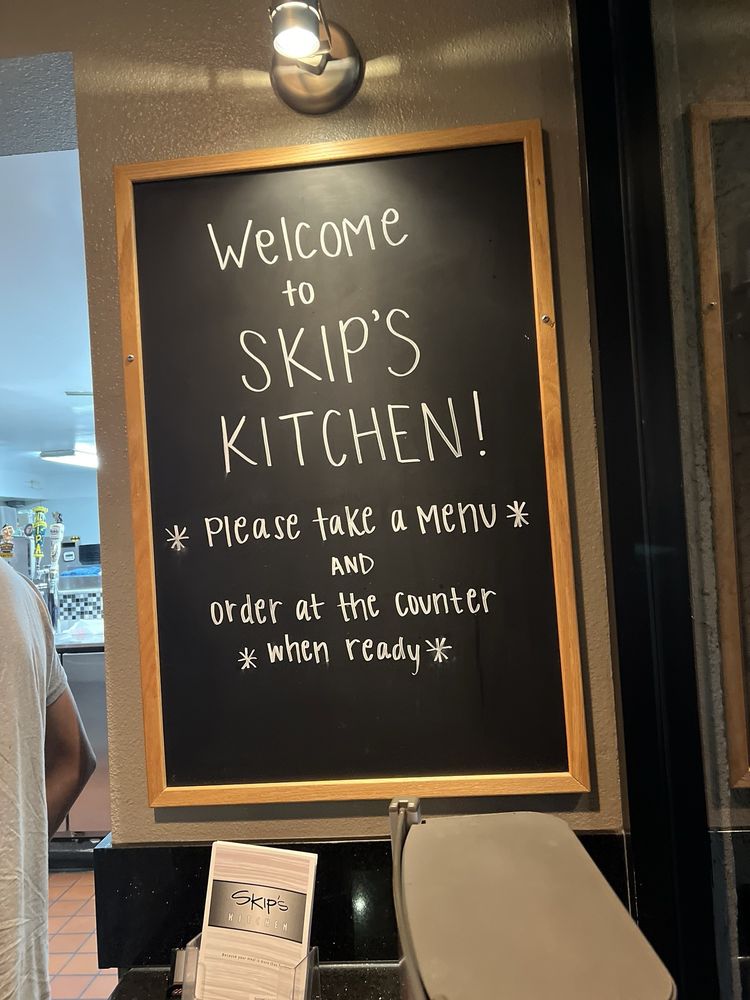 Welcome
to
SKIP'S
KITCHEN!
* Please take a menu *
AND
order at the counter
* when ready *
SKIP'S
KITCHEN